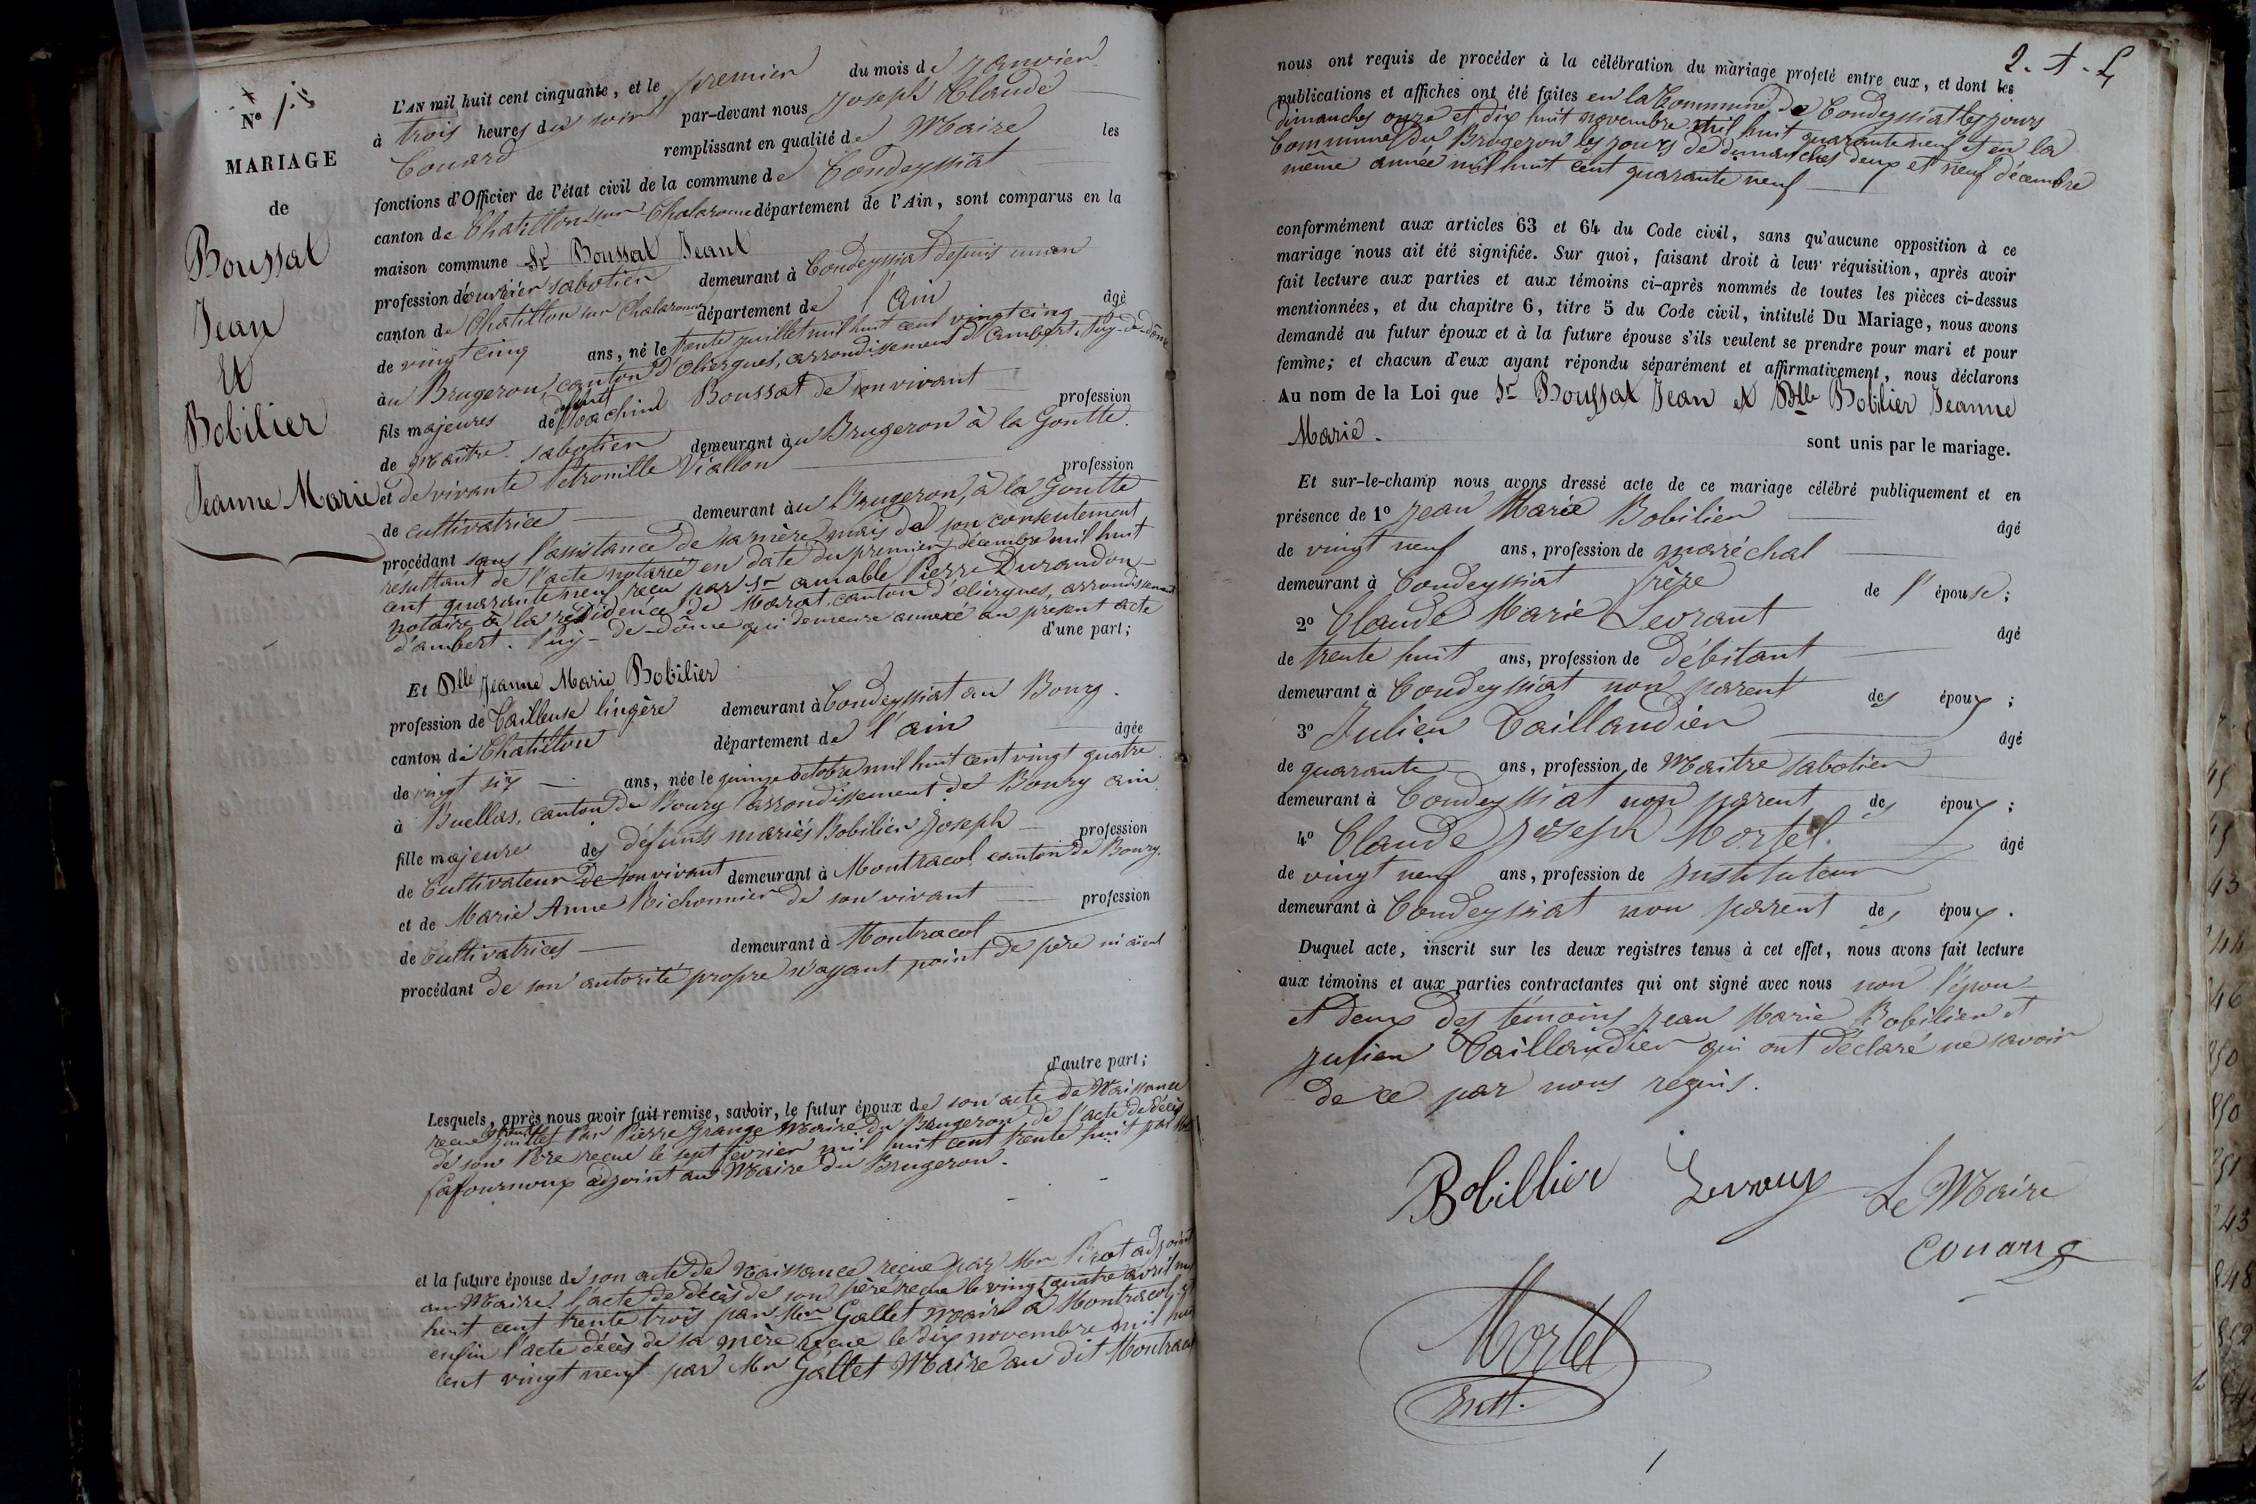 Nº 1er
MARIAGE
de
Boussat
Jean
Et
Bobilier
Jeanne Marie
L'AN mil huit cent cinquante, et le premier du mois de Janvier
à trois heures du soir par-devant nous Joseph Claude
Couard remplissant en qualité de Maire les
fonctions d'Officier de l'état civil de la commune de Condeyssiat
canton de Chatillon sur Chalaronne département de l'Ain, sont comparus en la
maison commune Sr Boussat Jean
profession d'ouvrier sabotier demeurant à Condeyssiat depuis un an
canton de Chatillon sur Chalaronne département de l'Ain âgé
de vingt cinq ans, né le trente juillet mil huit cent vingt cinq
au Brugeron, canton d'Oliergues, arrondissement d'Ambert. Puy-de-dôme
fils majeures de défunt Joachim Boussat de son vivant profession
de Maître-sabotier demeurant au Brugeron à la Goutte.
et de vivante Petronille Viallon profession
de cultivatrice demeurant au Brugeron, à la Goutte
procédant sans l'assistance de sa mère mais de son consentement
resultant de l'acte notarié en date du premier décembre mil huit
cent quarante neuf reçu par Sr amable Pierre Durandon
notaire à la résidence de Marat, canton d'oliergues, arrondissement
d'ambert. Puy-de-dôme qui demeure annexé au présent acte
d'une part;
Et Dlle Jeanne Marie Bobilier
profession de Tailleuse lingère demeurant à Condeyssiat au Bourg.
canton de Chatillon département de l'ain âgée
de vingt six ans, née le quinze octobre mil huit cent vingt quatre
à Buellas, canton de Bourg arrondissement de Bourg ain
fille majeure des défunts mariés Bobilier Joseph profession
de Cultivateur de son vivant demeurant à Montracol canton de Bourg.
et de Marie Anne Richonnier de son vivant profession
de Cultivatrices demeurant à Montracol
procédant de son autorité propre n'ayant point de père ni aïeul
d'autre part;
Lesquels, après nous avoir fait remise, savoir, le futur époux de son acte de Naissance
reçue juillet Par Pierre Grange Maire du Brugeron de l'acte de décès
de son Père reçue le sept février mil huit cent trente huit par
Lafournoux adjoint au Maire du Brugeron.
et la future épouse de son acte de Naissance reçue par Mr Pirot adjoint
au Maire. l'acte de décès de son père reçue le vingt quatre avril mil
huit cent trente trois par Mr Gallet Maire à Montracol, et
enfin l'acte décès de sa mère reçue le dix novembre mil huit
cent vingt neuf par Mr Gallet Maire au dit Montracol
2.
nous ont requis de procéder à la célébration du mariage projeté entre eux, et dont les
publications et affiches ont été faites en la Commune de Condeyssiat les jours
dimanches onze et dix huit novembre mil huit quarante neuf et en la
Commune du Brugeron les jours de dimanches deux et neuf décembre
même année mil huit cent quarante neuf
conformément aux articles 63 et 64 du Code civil, sans qu'aucune opposition à ce
mariage nous ait été signifiée. Sur quoi, faisant droit à leur réquisition, après avoir
fait lecture aux parties et aux témoins ci-après nommés de toutes les pièces ci-dessus
mentionnées, et du chapitre 6, titre 5 du Code civil, intitulé Du Mariage, nous avons
demandé au futur époux et à la future épouse s'ils veulent se prendre pour mari et pour
femme; et chacun d'eux ayant répondu séparément et affirmativement, nous déclarons
Au nom de la Loi que Sr Boussat Jean et Dlle Bobilier Jeanne
Marie. sont unis par le mariage.
Et sur-le-champ nous avons dressé acte de ce mariage célébré publiquement et en
présence de 1º Jean Marie Bobilier âgé
de vingt neuf ans, profession de maréchal
demeurant à Condeyssiat frère de l'épouse;
2º Claude Marie Levrant âgé
de trente huit ans, profession de débitant
demeurant à Condeyssiat non parent des époux;
3º Julien Taillandier âgé
de quarante ans, profession de Maitre sabotier
demeurant à Condeyssiat non parent des époux;
4º Claude Joseph Mortel. âgé
de vingt neuf ans, profession de Instituteur
demeurant à Condeyssiat non parent des époux.
Duquel acte, inscrit sur les deux registres tenus à cet effet, nous avons fait lecture
aux témoins et aux parties contractantes qui ont signé avec nous non l'épou
et deux des témoins Jean Marie Bobilier et
Julien Taillandier qui ont déclaré ne savoir
de ce par nous requis.
Bobillier Levroux Le Maire
Couard
Mortel
Instt.